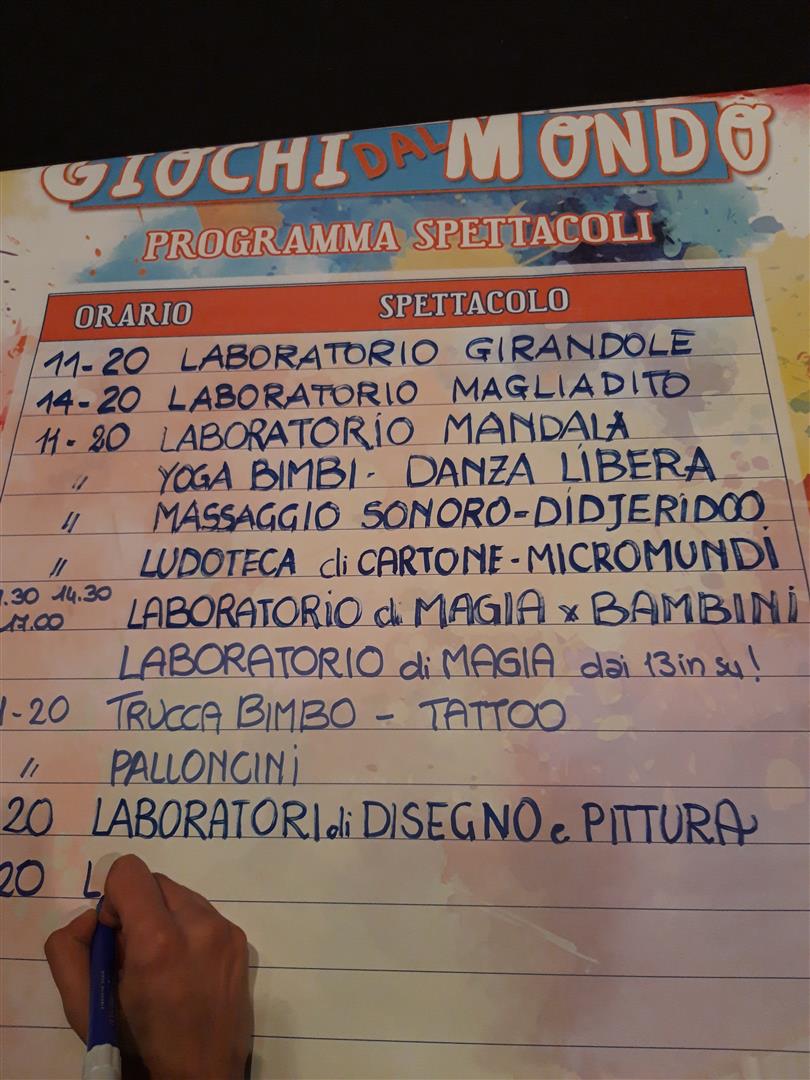 GIOCHI DAL MONDO
PROGRAMMA SPETTACOLI
ORARIO SPETTACOLO
11-20 LABORATORIO GIRANDOLE
14-20 LABORATORIO MAGLIADITO
11-20 LABORATORIO MANDALA
" YOGA BIMBI - DANZA LIBERA
" MASSAGGIO SONORO-DIDJERIDOO
" LUDOTECA di CARTONE-MICROMUNDI
.30 14.30
17.00 LABORATORIO di MAGIA x BAMBINI
LABORATORIO di MAGIA dai 13 in su!
1-20 TRUCCA BIMBO - TATTOO
" PALLONCINI
20 LABORATORI di DISEGNO e PITTURA
20 L